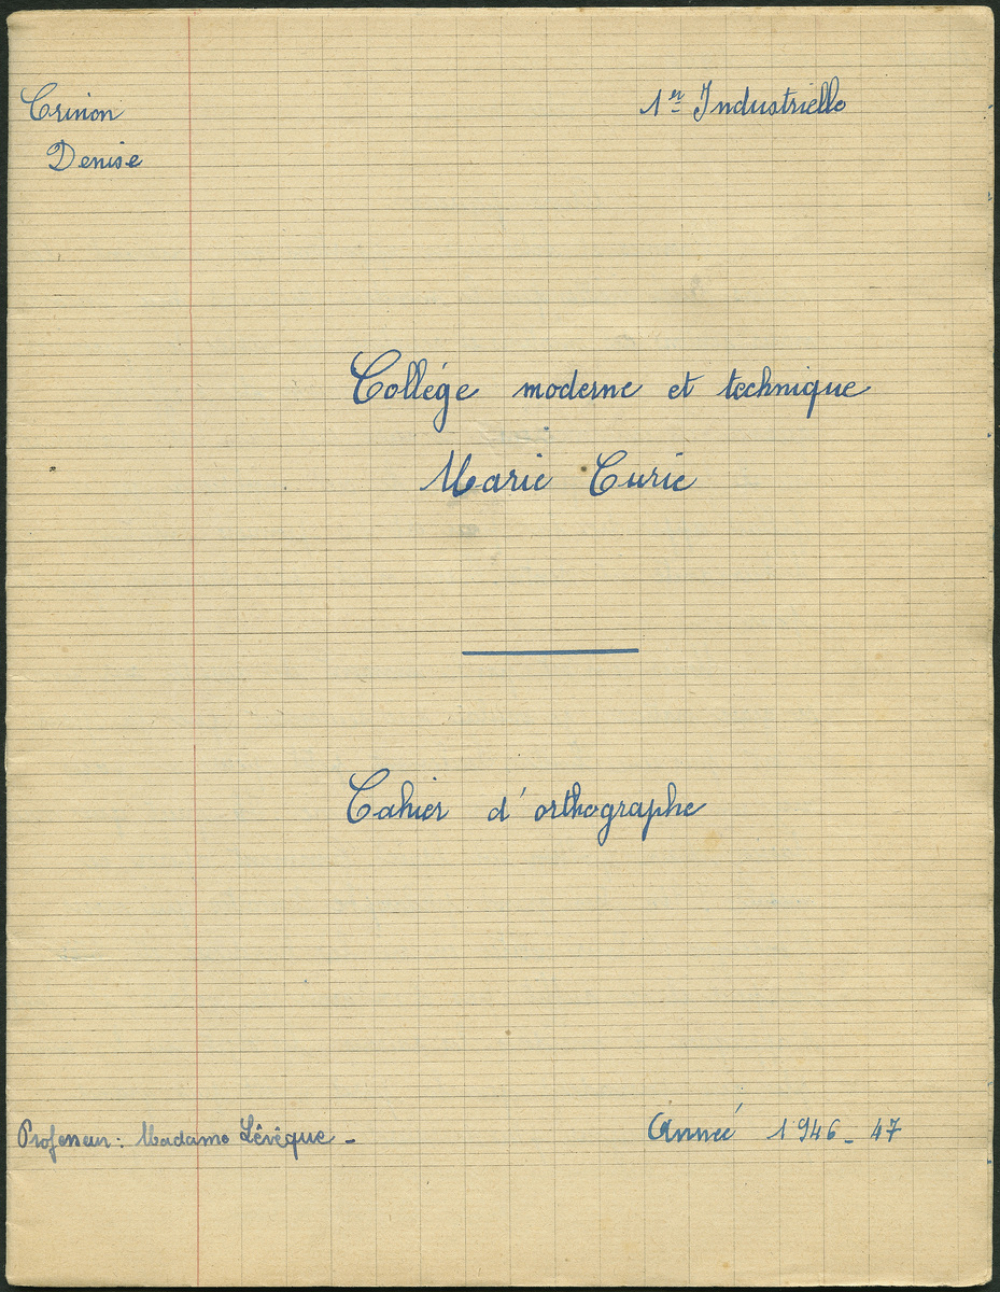 Crinon
Denise
1er Industrielle
Collége moderne et technique
Marie Curie
Cahier d'orthographe
Professeur : Madame Lévêque -
Année 1946-47